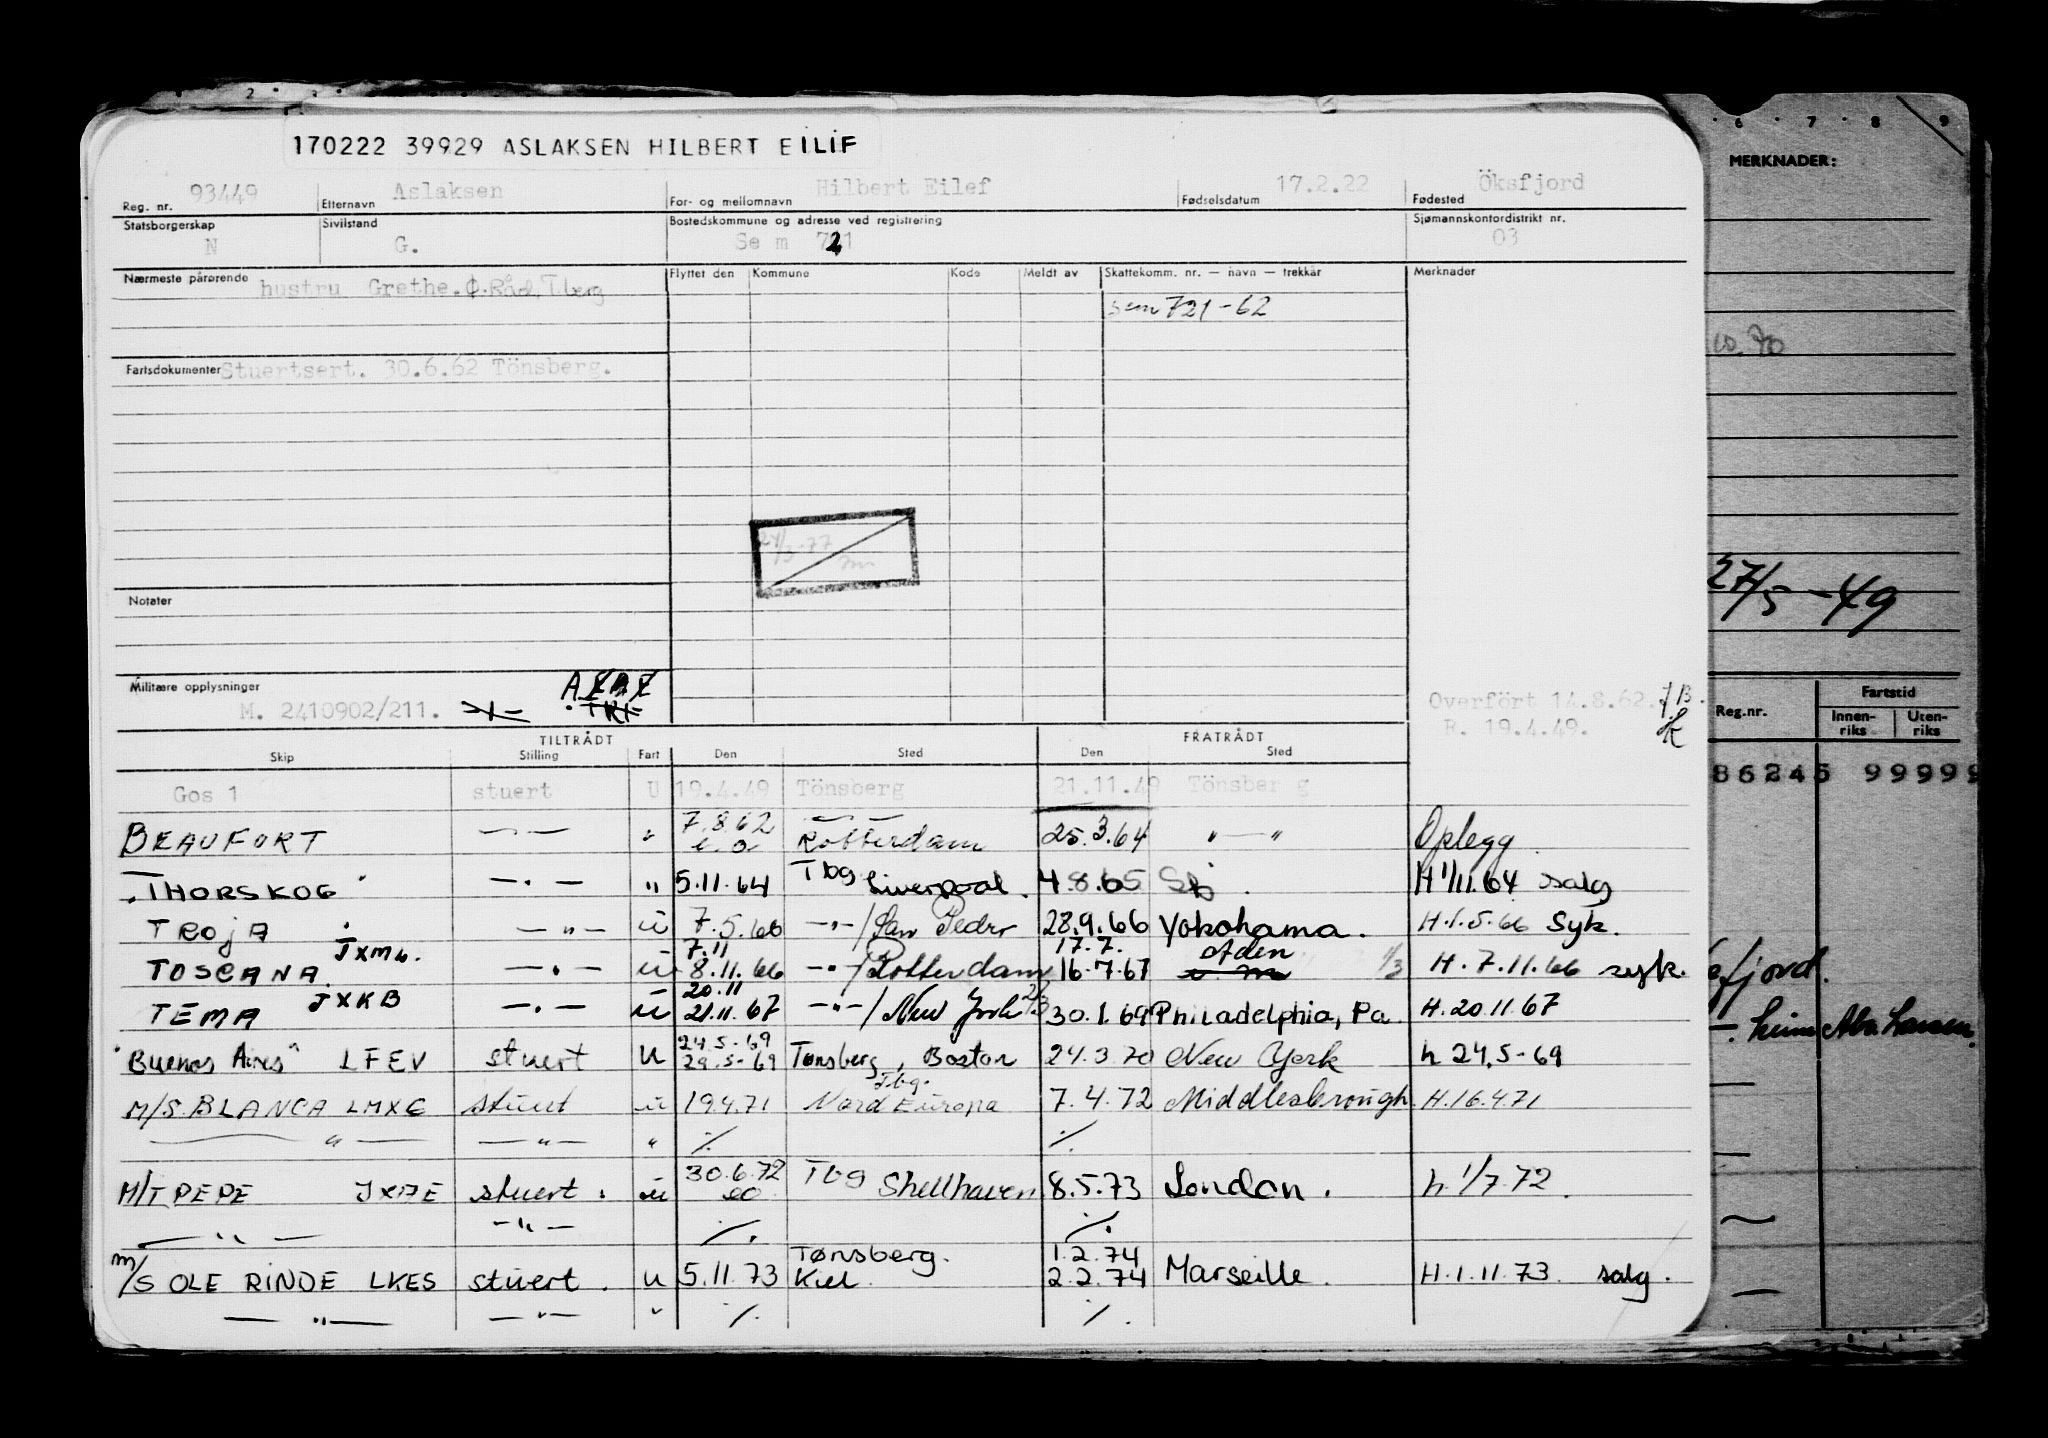 170222 39929 ASLAKSEN HILBERT EILIF
Reg. nr. 93449 Etternavn Aslaksen For- og mellomnavn Hilbert Eilef Fødselsdatum 17.2.22 Fødested Öksfjord
Statsborgerskap N Sivilstand G. Bostedskommune og adresse ved registrering Sem 721 Sjømannskontordistrikt nr. 03
Nærmeste pårørende hustru Grethe. Flyttet den Kommune Kode Meldt av Skattekomm. nr. — navn — trekkår Merknader
Sem 721-62
Fartsdokumenter Stuertsert. 30.6.62 Tönsberg.
Notater
Militære opplysninger
M. 2410902/211.
Overfört 14.8.62.
R. 19.4.49.
TILTRÅDT FRATRÅDT
Skip Stilling Fart Den Sted Den Sted
Gos 1 stuert U 19.4.49 Tönsberg 21.11.49 Tönsberg
7.8.62
BEAUFORT — " — " Rotterdam 25.3.64 " — " Oplegg
THORSKOG — " — " 5.11.64 Tbg Liverpool. 4.8.65 H 1/11.64 salg
TROJA — " — u 7.5.66 — " — / San Pedro 28.9.66 Yokohama. H.1.5.66 Syk.
JXMG. 7.11 17.7. Aden
TOSCANA — " — u 8.11.66 — " — / Rotterdam 16.7.67 H. 7.11.66 syk.
JXKB 20.11
TEMA — " — u 21.11.67 — " — / New York 30.1.69 Philadelphia, Pa. H.20.11.67
24.5-69
"Buenos Aires" LFEV stuert u 29.5-69 Tønsberg, Boston 24.3.70 New York h 24.5-69
Tbg.
M/S BLANCA LMXG stuert u 19.4.71 Nord Europa 7.4.72 Middlesbrough. H.16.4.71
— " — — " — " ./. ./.
30.6.72
M/T PEPE JXDE stuert. u eo Tbg Shellhaven 8.5.73 London. h 1/7.72.
— " — — " — ./. ./.
Tønsberg. 1.2.74
m/S OLE RINDE LKES stuert. u 5.11.73 Kiel. 2.2.74 Marseille. H.1.11.73 salg.
— " — — " — " ./. ./.
6 7 8 9
MERKNADER:
10.70
27/5-49
Reg.nr. Fartstid
Innen-riks Uten-riks
86245 99999
fjord.